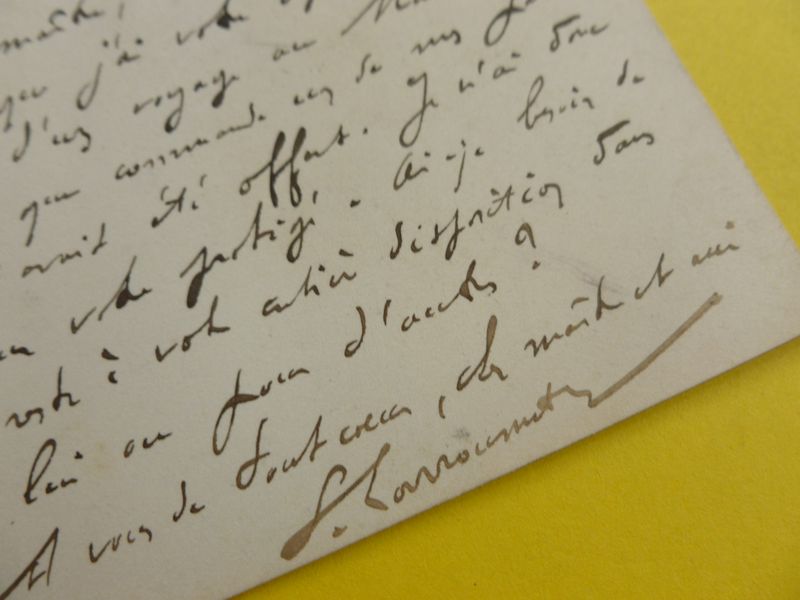 maître,
j'ai votre
d'un voyage au
que commande un de mes
avait été offert. Je n'ai donc
votre protégé. Ai-je besoin de
reste à votre entière disposition dans
lui ou pour d'autres ?
A vous de tout coeur, cher maître et ami
G. Larroumet